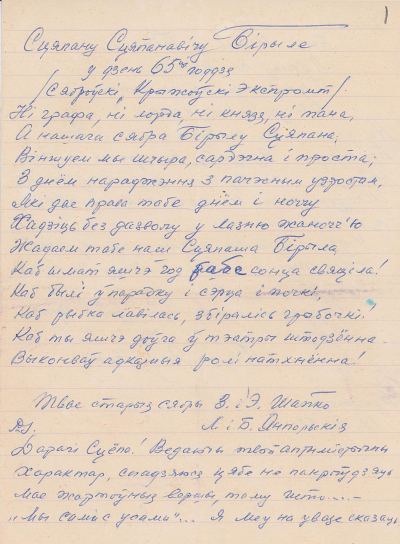 1
Сцяпану Сцяпанавічу Бірыла
у дзень 65ці годдзя
/Сяброўскі "Крыжоўскі экспромт"/.
Ні графа, ні лорда, ні князя, ні пана,
А нашага сябра Бірылу Сцяпана,
Віншуем мы шчыра, сардэчна і проста;
З днём нараджэння з пачэсным узростам,
Які дае права табе днём і ноччу
Хадзіць без дазволу у лазню жаноччу
Жадаем табе наш Сцяпаша Бірыла
Каб шмат яшчэ год табе сонца свяціла!
Каб былі ў парадку і сэрца і почкі,
Каб рыбка лавілась, збіралісь грыбочкі.
Каб ты яшчэ доўга ў тэатры штодзённа
Выконваў адказныя ролі натхнённа!
Твае старыя сябры З. і Э. Шапко
Л і Б.
P.S.
Дарагі Сцёпа! Ведаючы твой аптымістычны
характар, спадзяюся цябе не пакрыўдзяць
мае жартоўныя вершы, таму што....-
"Мы самі с усамі"... Я меў на ўвазе сказаць